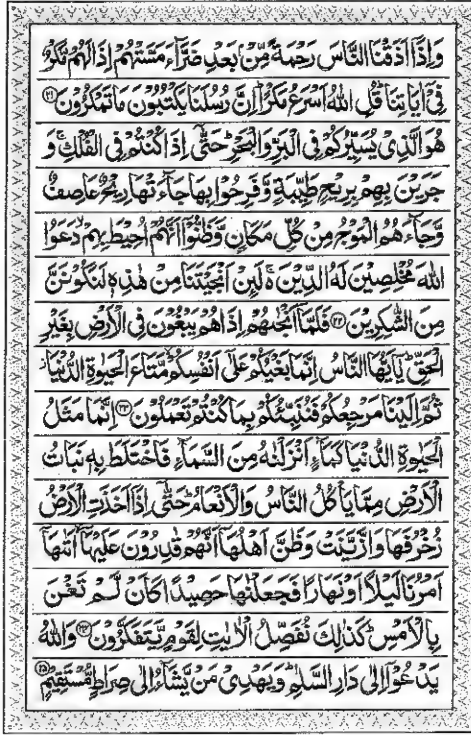 وَاِذَاۤ اَذَقْنَا النَّاسَ رَحْمَةً مِّنْۢ بَعْدِ ضَرَّآءَ مَسَّتْهُمْ اِذَا لَهُمْ مَّكْرٌ
فِىْۤ اٰيَاتِنَا ؕ قُلِ اللّٰهُ اَسْرَعُ مَكْرًا ؕ اِنَّ رُسُلَنَا يَكْتُبُوْنَ مَا تَمْكُرُوْنَ ﴿۲۱﴾
هُوَ الَّذِىْ يُسَيِّرُكُمْ فِى الْبَرِّ وَالْبَحْرِ ؕ حَتّٰۤى اِذَا كُنْتُمْ فِى الْفُلْكِ ۚ وَ
جَرَيْنَ بِهِمْ بِرِيْحٍ طَيِّبَةٍ وَّفَرِحُوْا بِهَا جَآءَتْهَا رِيْحٌ عَاصِفٌ
وَّجَآءَهُمُ الْمَوْجُ مِنْ كُلِّ مَكَانٍ وَّظَنُّوْۤا اَنَّهُمْ اُحِيْطَ بِهِمْ ۙ دَعَوُا
اللّٰهَ مُخْلِصِيْنَ لَهُ الدِّيْنَ ۚ لَئِنْ اَنْجَيْتَنَا مِنْ هٰذِهٖ لَنَكُوْنَنَّ
مِنَ الشّٰكِرِيْنَ ﴿۲۲﴾ فَلَمَّاۤ اَنْجٰىهُمْ اِذَا هُمْ يَبْغُوْنَ فِى الْاَرْضِ بِغَيْرِ
الْحَقِّ ؕ يٰۤاَيُّهَا النَّاسُ اِنَّمَا بَغْيُكُمْ عَلٰۤى اَنْفُسِكُمْ مَّتَاعَ الْحَيٰوةِ الدُّنْيَا ز
ثُمَّ اِلَيْنَا مَرْجِعُكُمْ فَنُنَبِّئُكُمْ بِمَا كُنْتُمْ تَعْمَلُوْنَ ﴿۲۳﴾ اِنَّمَا مَثَلُ
الْحَيٰوةِ الدُّنْيَا كَمَآءٍ اَنْزَلْنٰهُ مِنَ السَّمَآءِ فَاخْتَلَطَ بِهٖ نَبَاتُ
الْاَرْضِ مِمَّا يَاْكُلُ النَّاسُ وَالْاَنْعَامُ ؕ حَتّٰۤى اِذَاۤ اَخَذَتِ الْاَرْضُ
زُخْرُفَهَا وَازَّيَّنَتْ وَظَنَّ اَهْلُهَاۤ اَنَّهُمْ قٰدِرُوْنَ عَلَيْهَاۤ ۙ اَتٰىهَاۤ
اَمْرُنَا لَيْلًا اَوْ نَهَارًا فَجَعَلْنٰهَا حَصِيْدًا كَاَنْ لَّمْ تَغْنَ
بِالْاَمْسِ ؕ كَذٰلِكَ نُفَصِّلُ الْاٰيٰتِ لِقَوْمٍ يَّتَفَكَّرُوْنَ ﴿۲۴﴾ وَاللّٰهُ
يَدْعُوْۤا اِلٰى دَارِ السَّلٰمِ ؕ وَيَهْدِىْ مَنْ يَّشَآءُ اِلٰى صِرَاطٍ مُّسْتَقِيْمٍ ﴿۲۵﴾